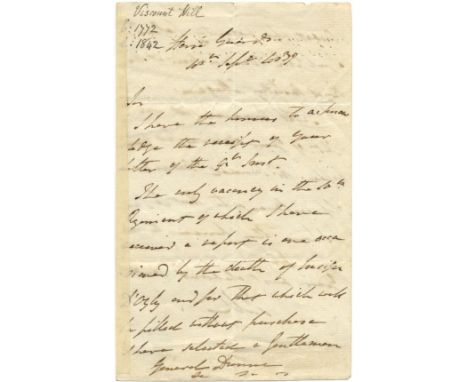 Viscount Hill
1772
1842
Horse Guards
10th Sept. 1839
Sir
I have the honour to acknow
ledge the receipt of your
letter of the 9th Inst.
The only vacancy in the
Regiment of which I have
received a report is one occa
sioned by the death of Ensign
D'Oyly and for that which will
be filled without purchase
I have selected a Gentleman
General